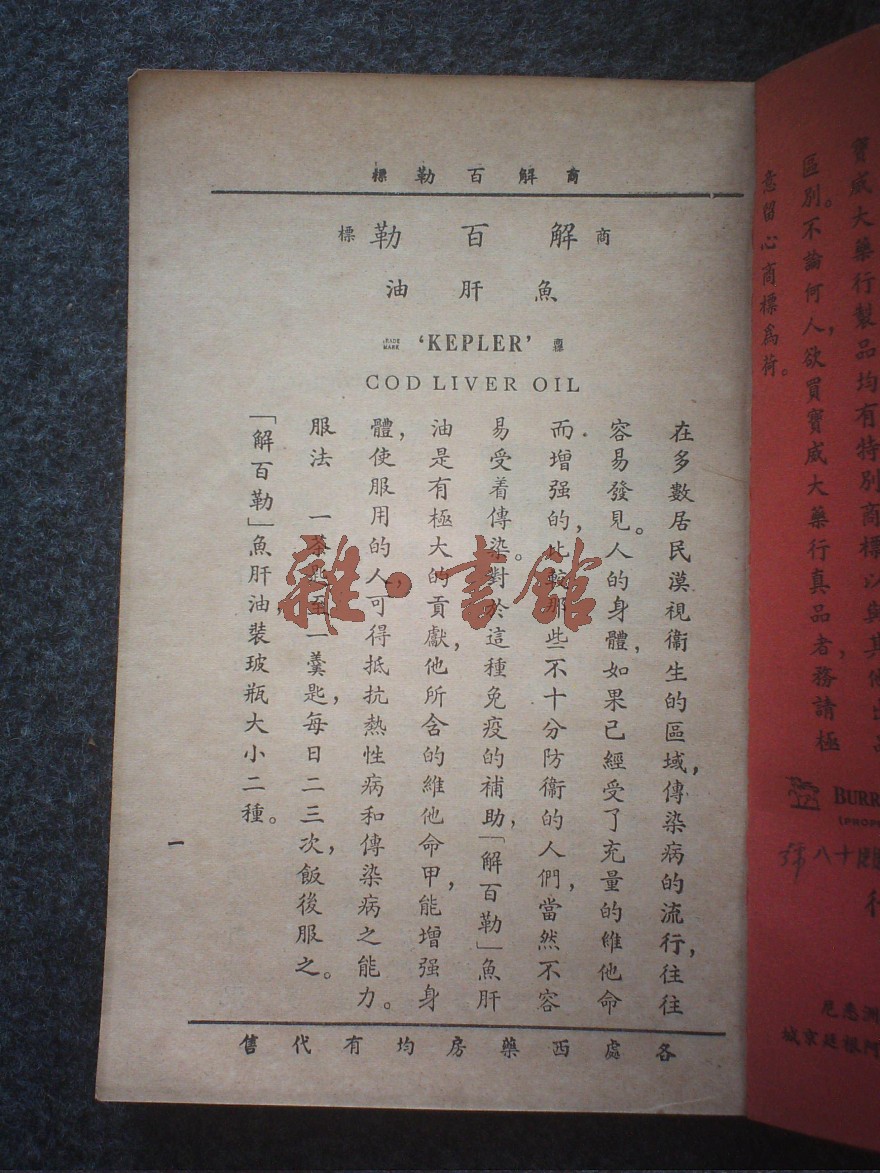 寶威大藥行製品均有特別商標以與其他出品
區別。不論何人,欲買寶威大藥行真品者,務請極
意留心商標爲荷。
BURR
(PROP
洲悉尼
阿根廷京城
商解百勒標
商解百勒標
魚肝油
TRADE MARK 'KEPLER' 商標
COD LIVER OIL
在多數居民漠視衞生的區域,傳染病的流行,往往
容易發見。人的身體,如果已經受了充量的維他命
而增强的,比較那些不十分防衞的人們,當然不容
易受着傳染。對於這種免疫的補助,「解百勒」魚肝
油是有極大的貢獻,他所含的維他命甲,能增强身
體,使服用的人,可得抵抗熱性病和傳染病之能力。
服法 一茶匙至一羹匙,每日二三次,飯後服之。
「解百勒」魚肝油裝玻瓶大小二種。
一
各處西藥房均有代售
雜·書館